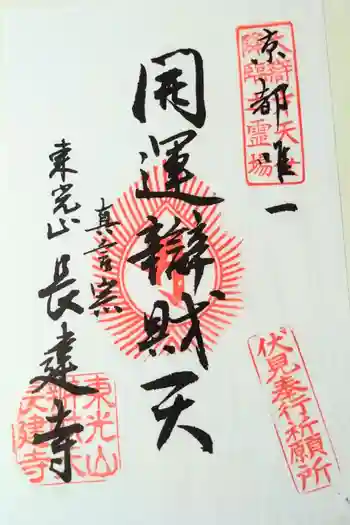 京都唯一
開運辯財天
真言宗
東光山 長建寺
伏見奉行祈願所
東光山
長建寺